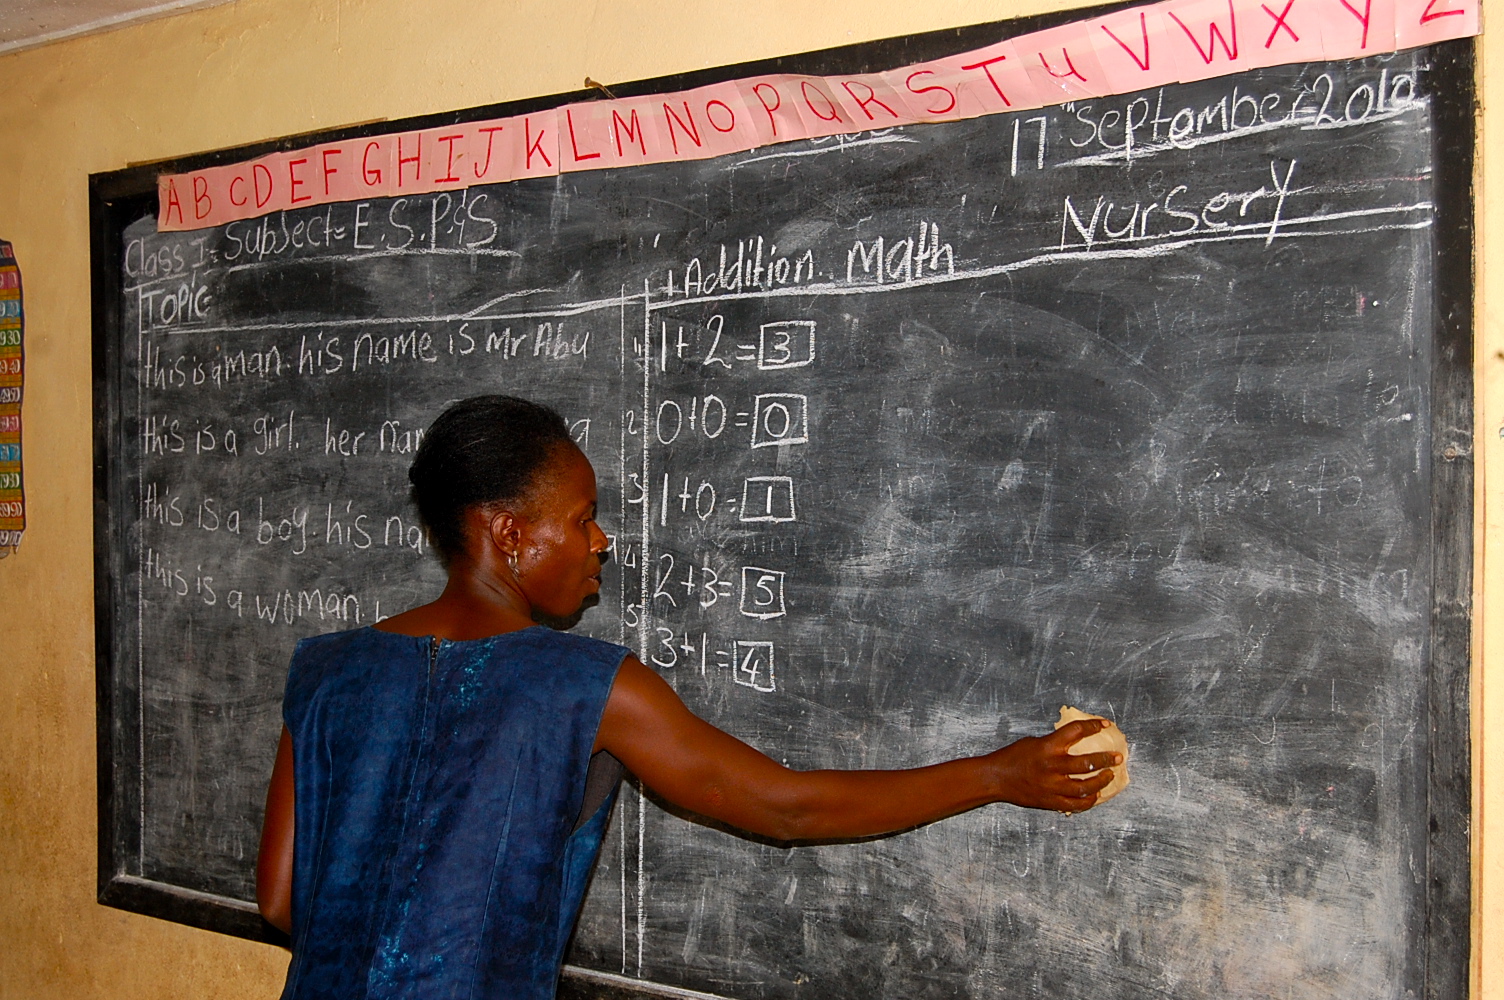 A B C D E F G H I J K L M N O P Q R S T U V W X Y Z
17th September 2010
Class I = Subject = E.S.P.&S
Nursery
+ Addition Math
Topic
this is a man. his name is Mr Abu
this is a girl. her
this is a boy. his
this is a woman.
1, 1+2=3
2 0+0=0
3 1+0=1
4 2+3=5
5 3+1=4